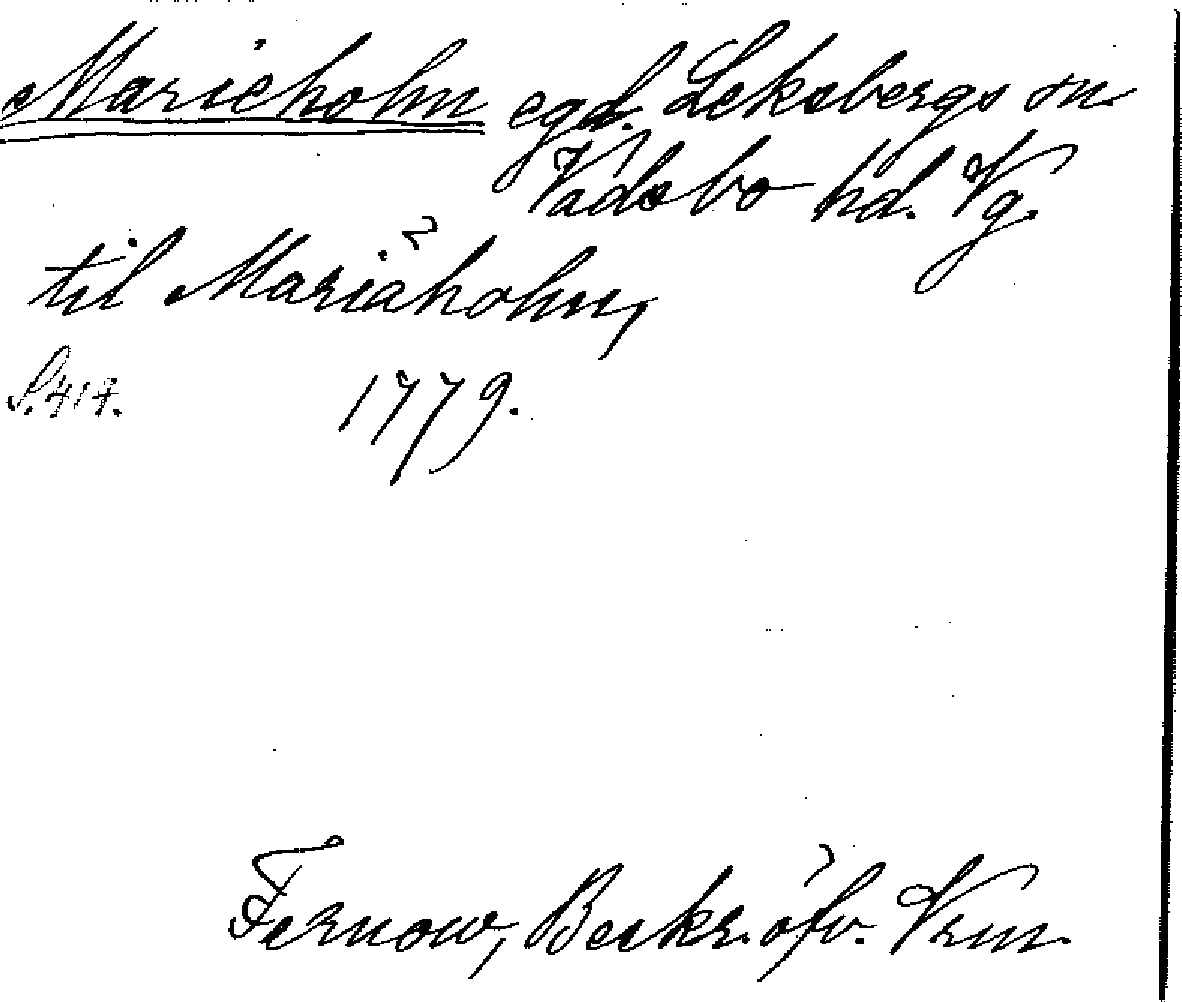 Marieholm egd. Leksbergs sn
Vadsbo hd. Vg.
til Mariäholm,
S. 414. 1779.
Fernow, Beskr. öfv. Vrm.